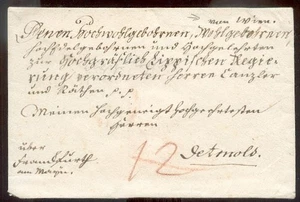 von Wien.
Denen, Hochwohlgebohrnen, Wohlgebohrnen,
Hochedelgebohrnen und Hochgelehrten
zur Hochgräflich Lippischen Regie-
rung verordneten Herren Canzler
und Räthen. p. p.
Meinen Hochgeneigt Hochgeehrtesten
Herren
über
Franckfurth
am Mayn.
12
Detmold.